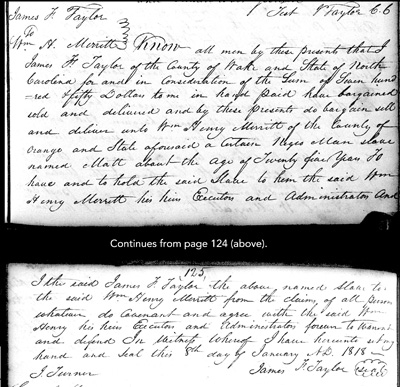 James F. Taylor 1 Test P Taylor C.C
To
Wm H. Merritt Know all men by these present that I
James F. Taylor of the County of Wake and State of North
Carolina for and in Consideration of the Sum of Four hund
=red & fifty Dollars to me in hand paid have bargained
sold and delivered and by these presents do bargain sell
and deliver unto Wm Henry Merritt of the County of
Orange and State aforesaid a Certain Negro Man slave
named Matt about the age of Twenty five Years To
have and to hold the said Slave to him the said Wm
Henry Merritt his heirs Executors and Administrators And
Continues from page 124 (above).
125.
I the said James F. Taylor the above named slave to
the said Wm Henry Merritt from the claim, of all person
whatever do Covenant and agree with the said Wm
Henry his heirs Executors and Administrators forever to Warrant
and defend In Witness Whereof I have hereunto set my
hand and Seal this 8th day of January A.D. 1818 —
J Turner James F. Taylor Seal